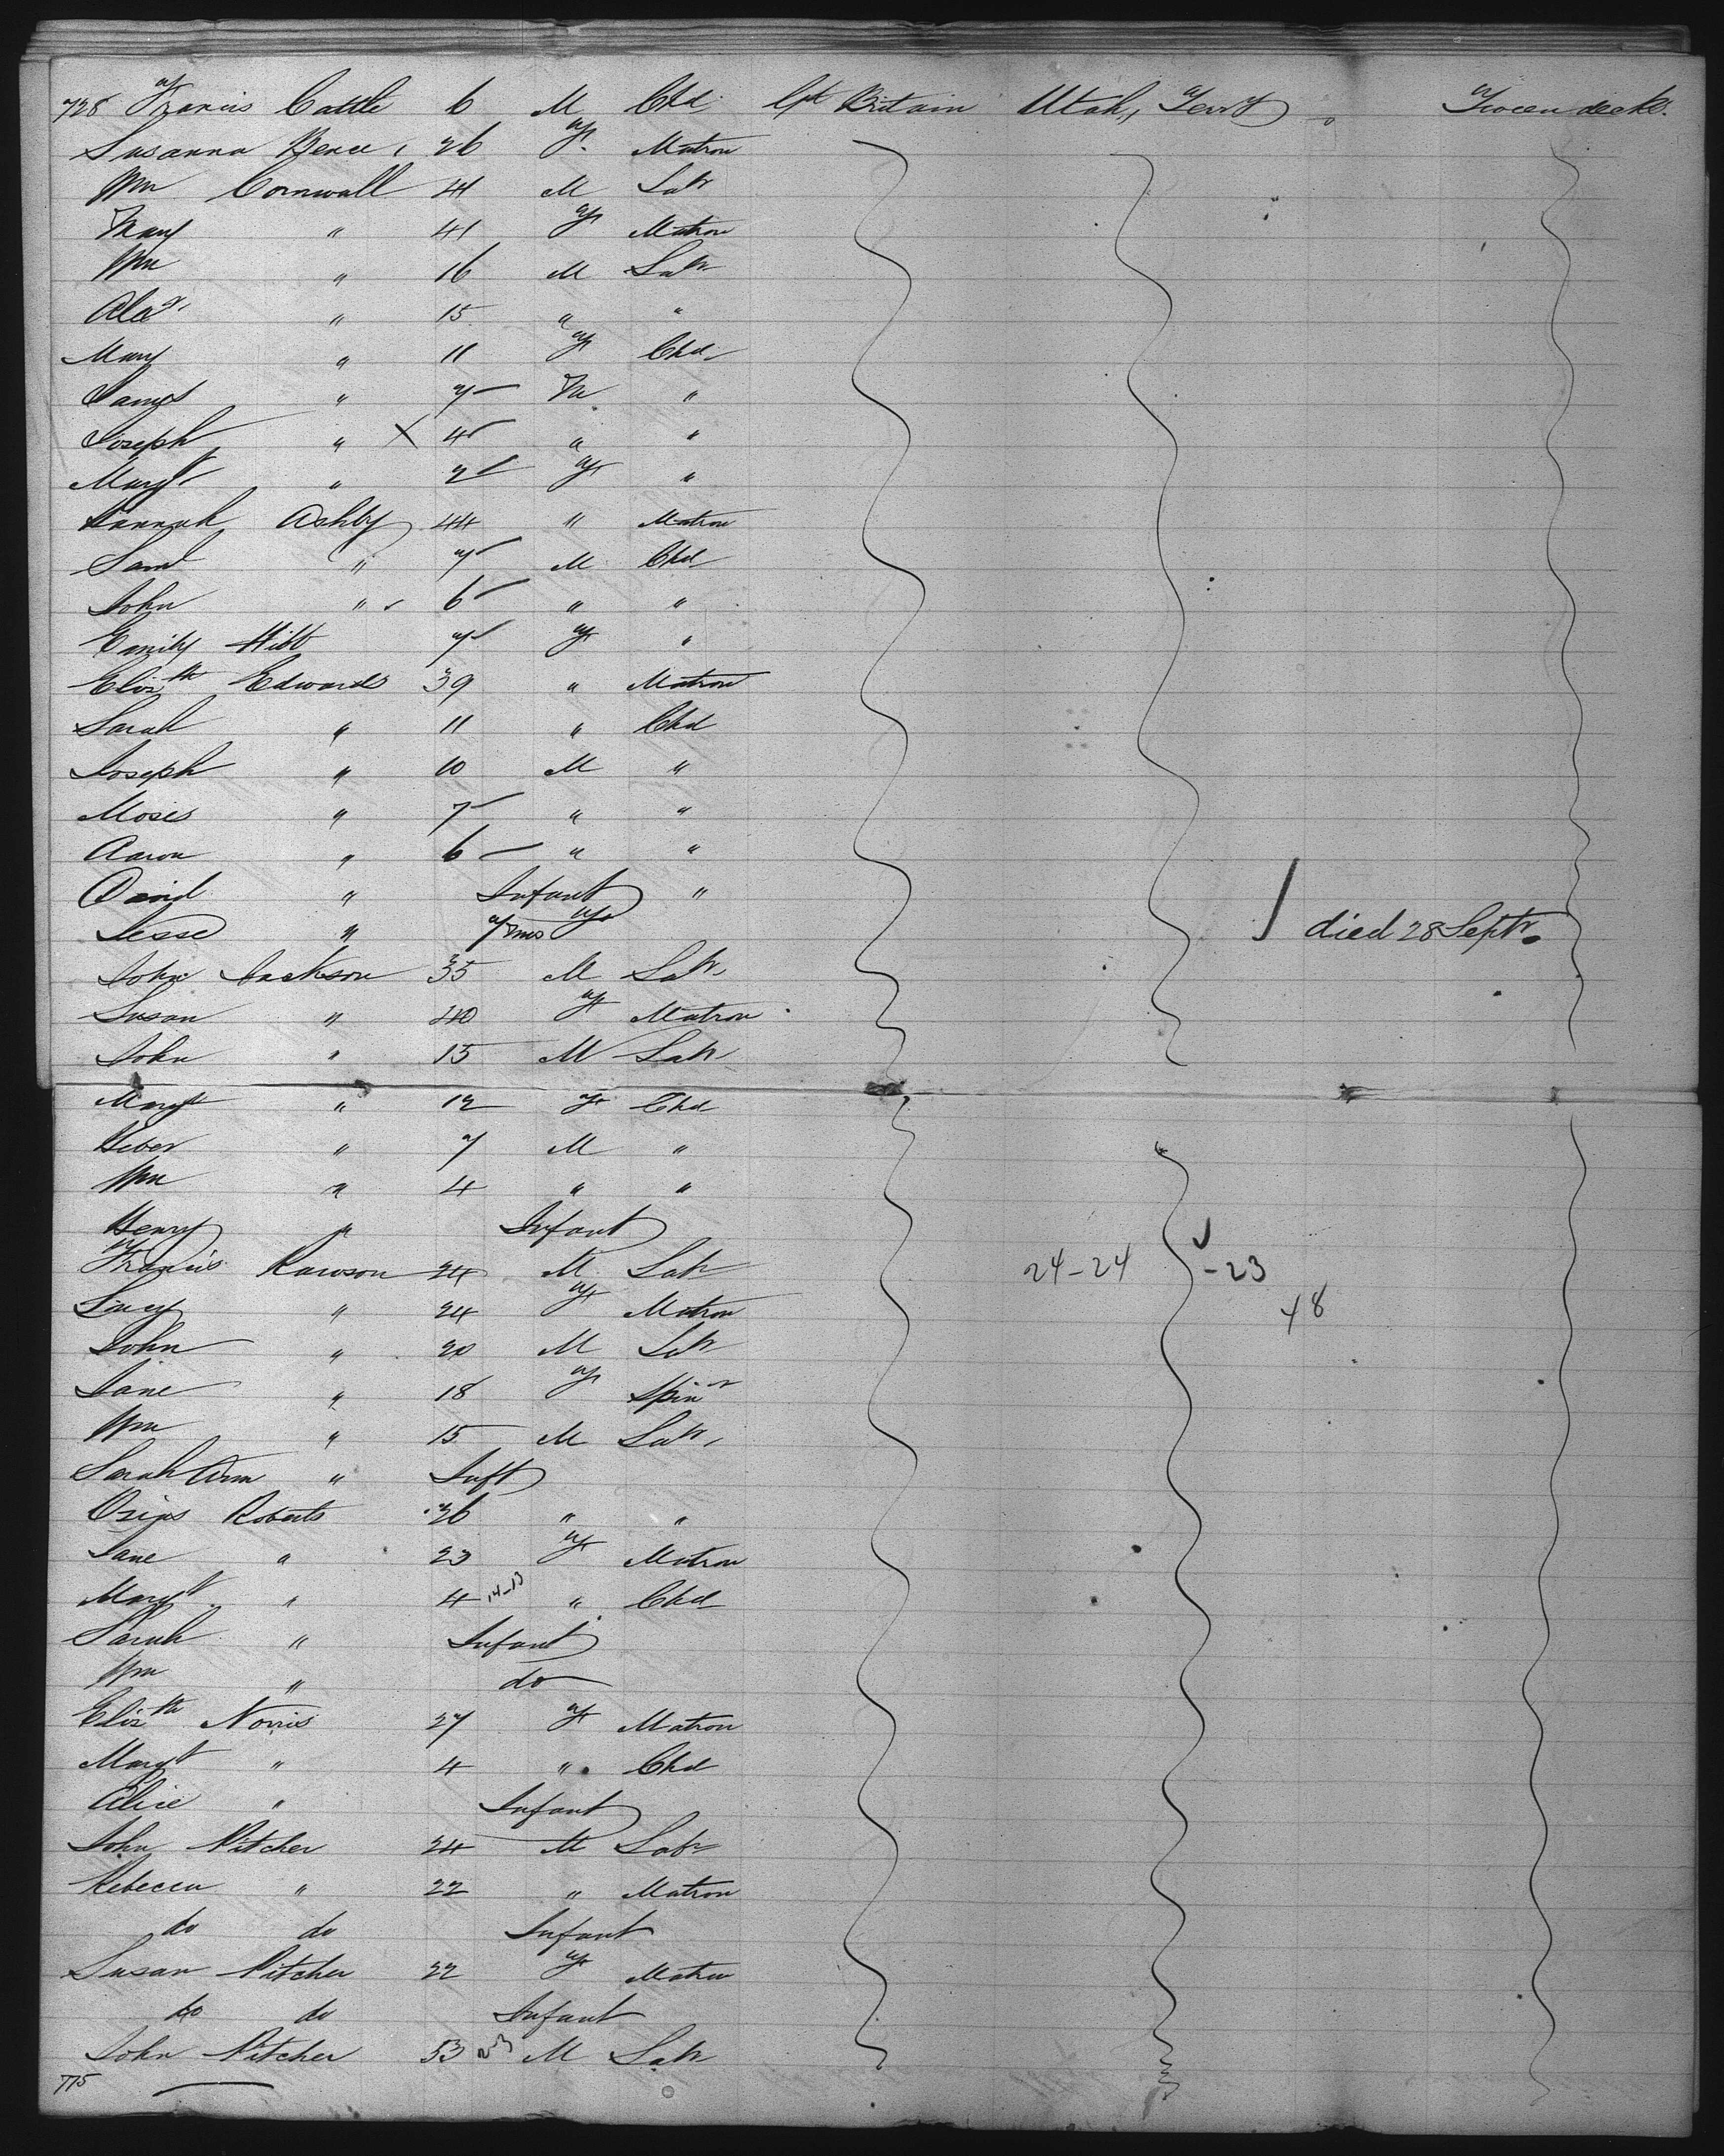 728 Francis Cattle 6 M Chd Gt Britain Utah, Terry Tween decks.
Susanna Bence 26 F. Matron
Wm Cornwall 41 M Labr
Mary " 41 F Matron
Wm " 16 M Labr
Alexr " 15 " "
Mary " 11 F Chd
James " 7 M "
Joseph " X 4 " "
Margt " 2 F "
Hannah Ashby 44 " Matron
Saml " 7 M Chd
John " 6 " "
Emily Hibt 7 F "
Elizth Edwards 39 " Matron
Sarah " 11 " Chd
Joseph " 10 M "
Moses " 7 " "
Aaron " 6 " "
David " Infant "
Jesse " 7 mos F died 28 Septr.
John Jackson 35 M Labr
Susan " 40 F Matron
John " 15 M Labr
Margt " 12 F Chd
Heber " 7 M "
Wm " 4 " "
Henry " Infant
Francis Rawson 24 M Labr 24-24 -23
Lucy " 24 F Matron 48
John " 20 M Labr
Jane " 18 F Spinr
Wm " 15 M Labr
Sarah Ann " Inft
Roberts 26 " "
Jane " 23 F Matron
Margt " 4 14-13 " Chd
Sarah " Infant
Wm " do
Elizth Norris 27 F Matron
Margt " 4 " Chd
Alice " Infant
John Pitcher 24 M Labr
Rebecca " 22 " Matron
do do Infant
Susan Pitcher 22 F Matron
do do Infant
John Pitcher 53 23 M Labr
775